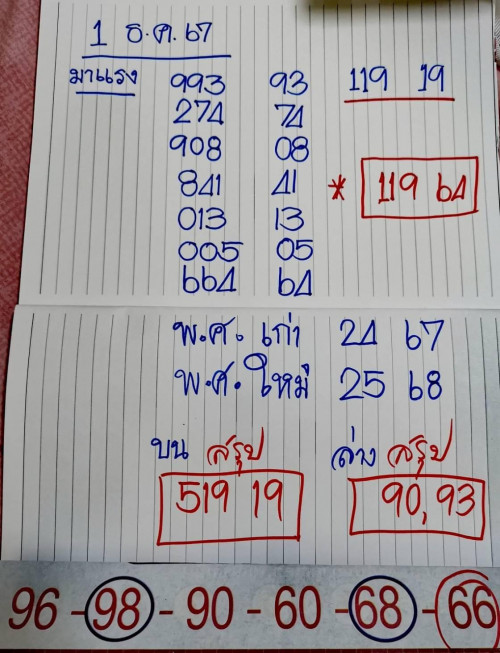 1 ธ.ค.67
มาแรง
993 93 119 19
274 74
908 08
841 41 * 119 64
013 13
005 05
664 64
พ.ศ. เก่า 24 67
พ.ศ. ใหม่ 25 68
บน สรุป ล่าง สรุป
519 19 90, 93
96 - 98 - 90 - 60 - 68 - 66